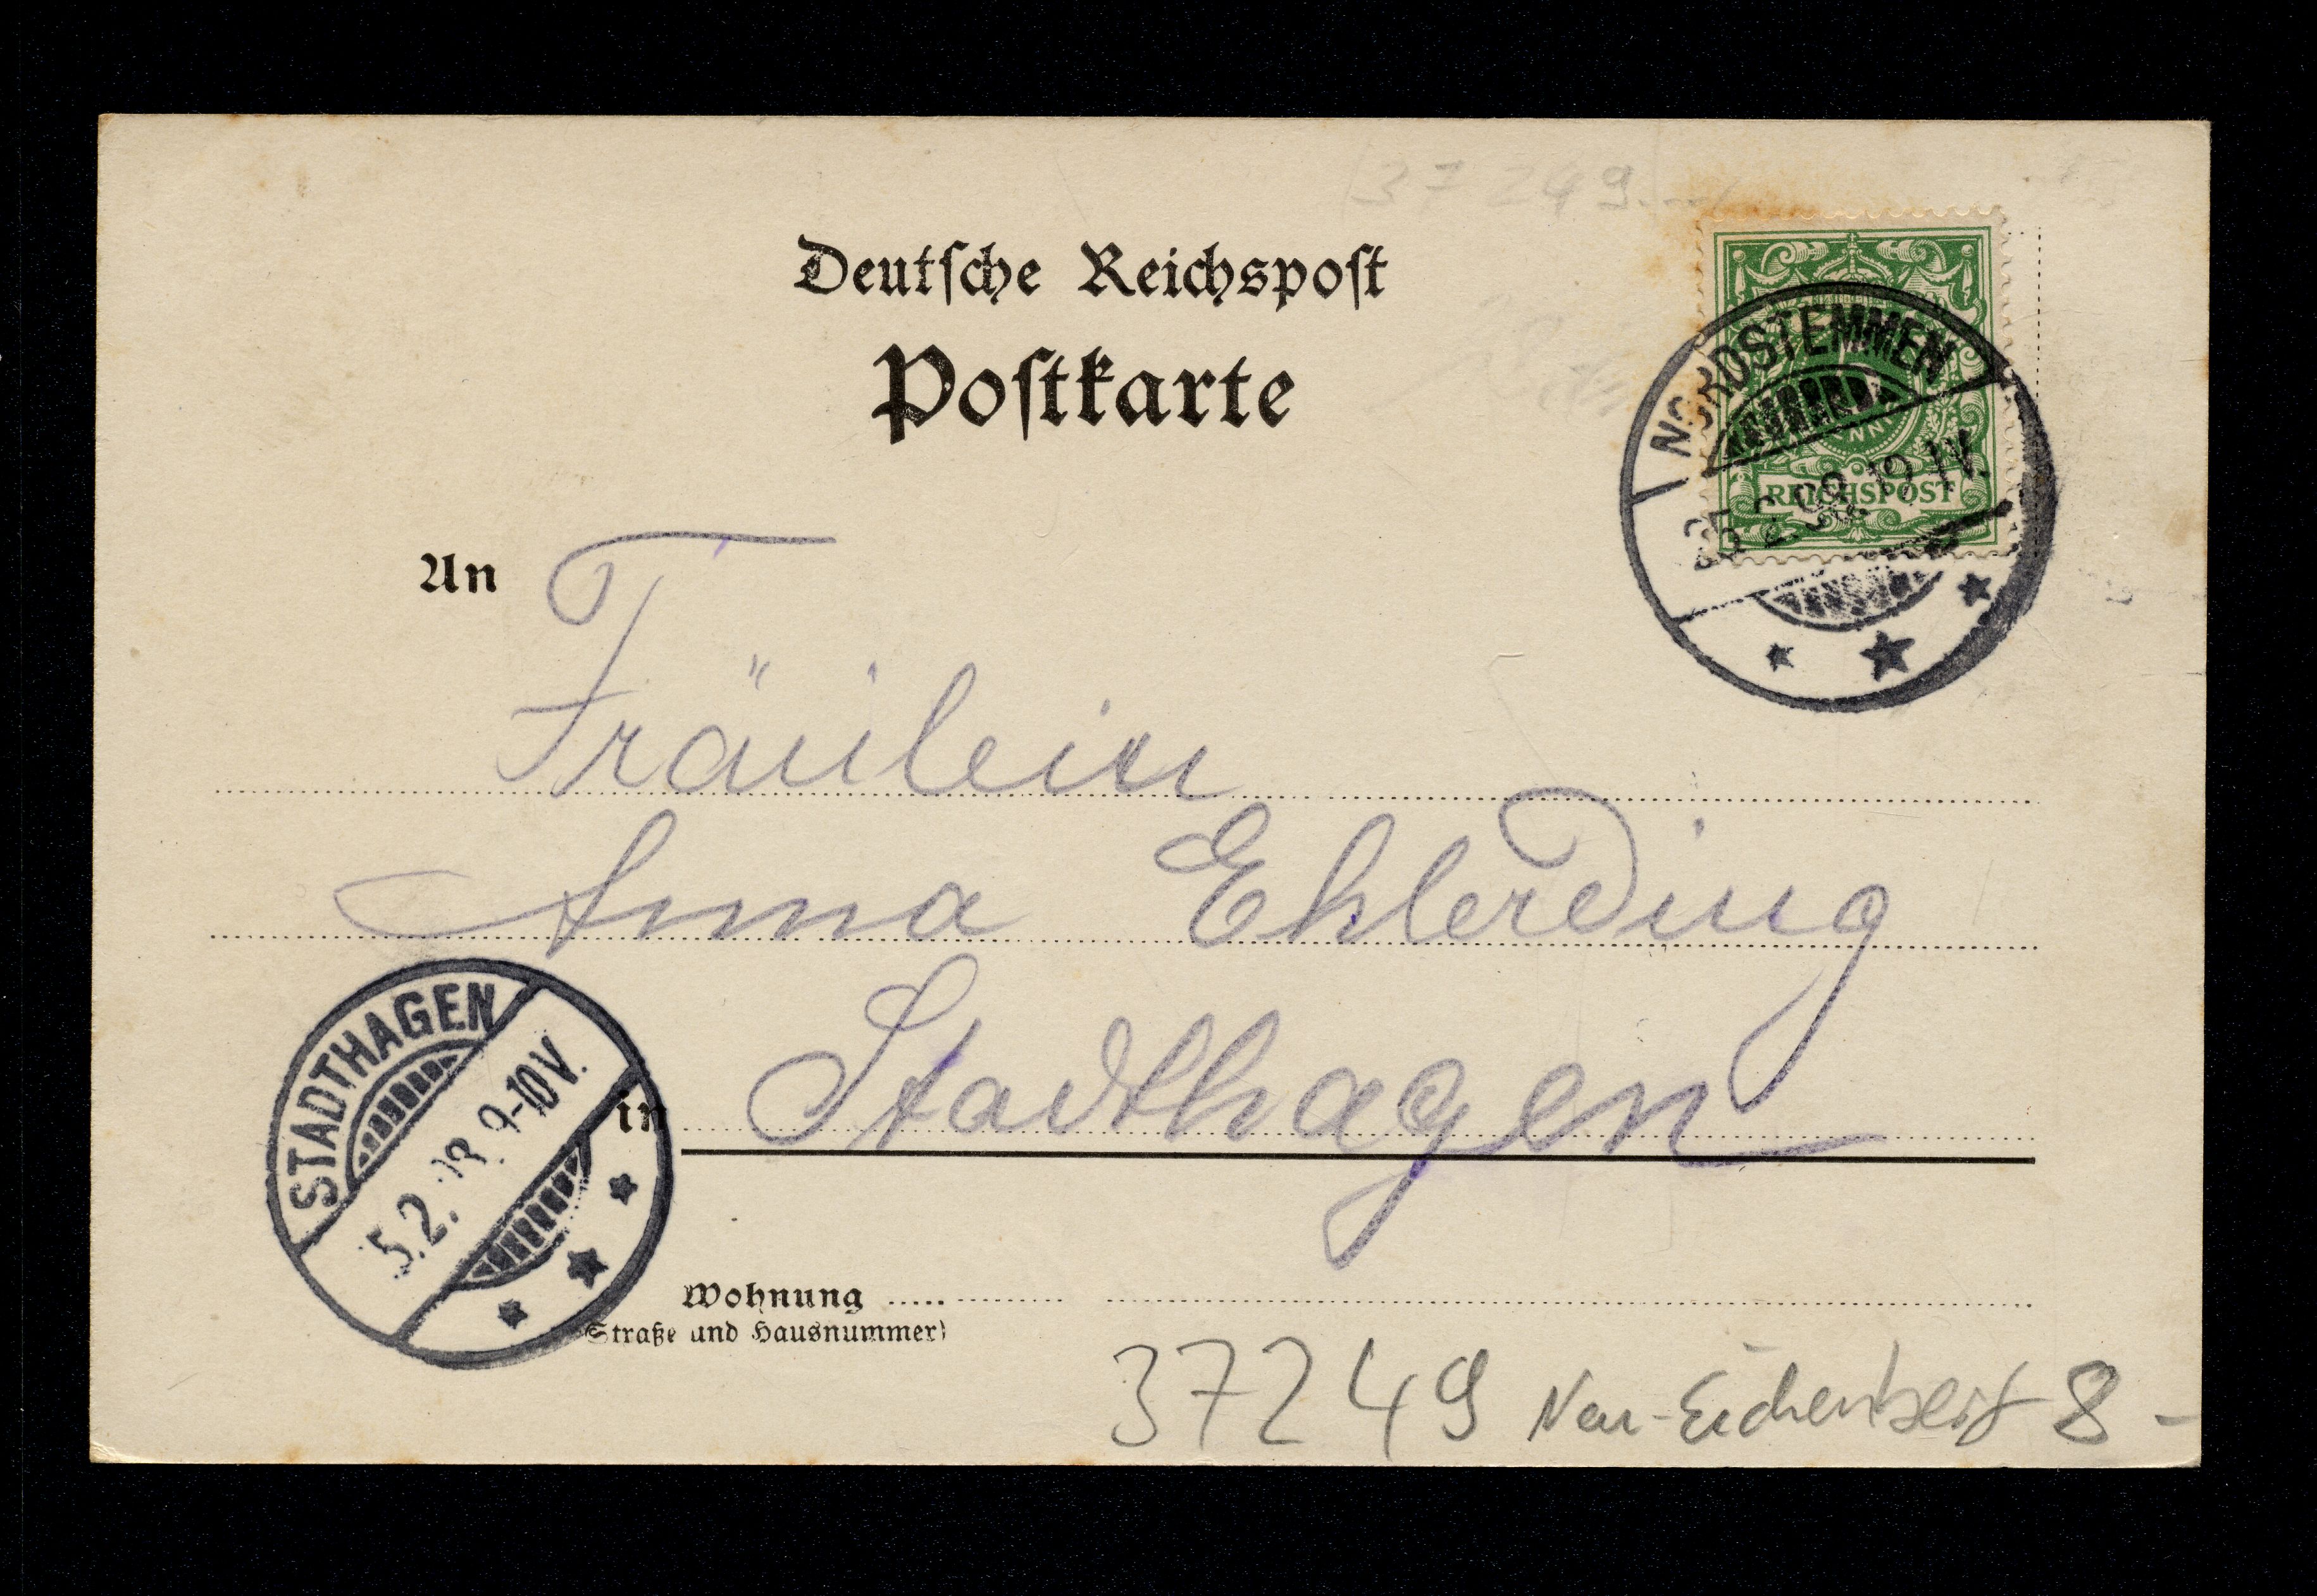 37249
Deutsche Reichspost
Postkarte
NORDSTEMMEN
REICHSPOST
An
Fräulein
Anna Ehlerding
in Stadthagen
STADTHAGEN
5.2. 9-10V.
Wohnung
(Straße und Hausnummer)
37249 Neu-Eichenberg 8-